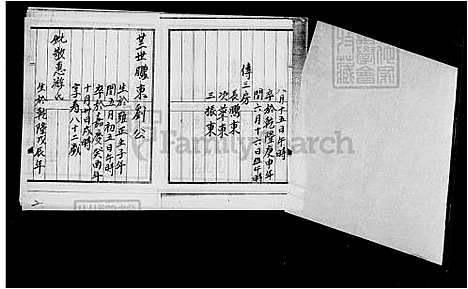 八月十五日午時
卒於乾隆庚申年
閏六月十六日丑時
傳三房
長鵬東
次華東
三振東
廿世鵬東劉公
生於雍正壬子年
閏五月初五日午時
卒於嘉慶癸酉年
十月初四日戌時
享壽八十二歲
妣敬惠游氏
生於乾隆戊辰年
FamilySearch